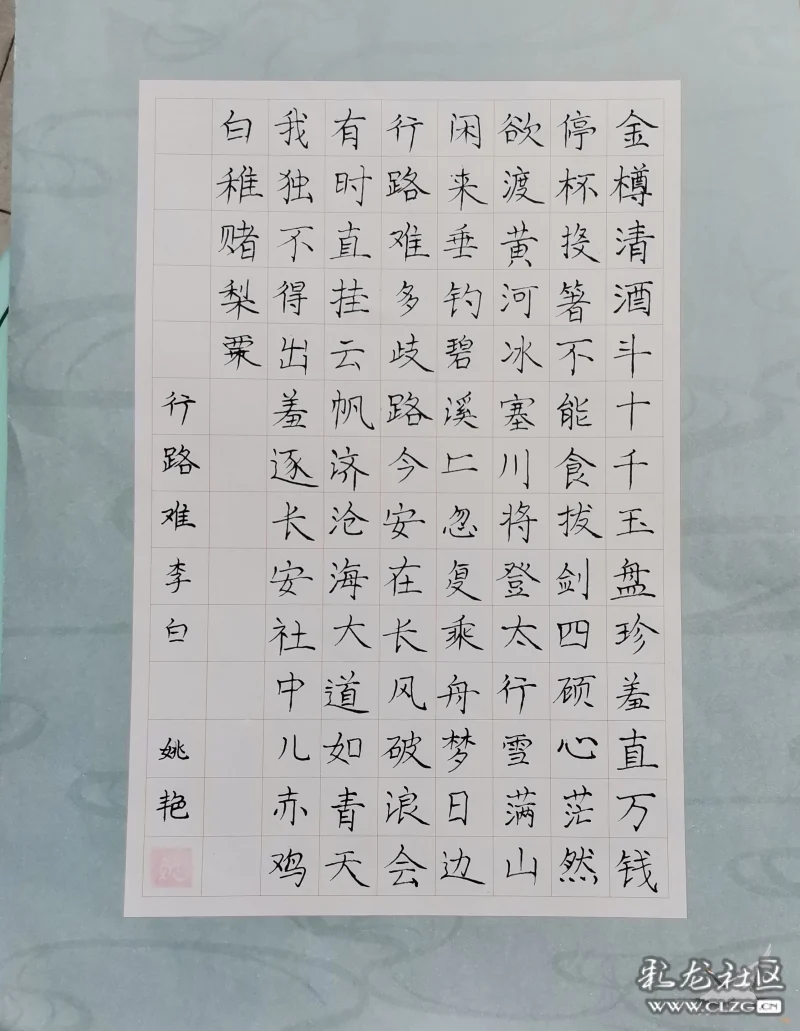 金樽清酒斗十千玉盘珍羞直万钱
停杯投箸不能食拔剑四顾心茫然
欲渡黄河冰塞川将登太行雪满山
闲来垂钓碧溪上忽复乘舟梦日边
行路难多歧路今安在长风破浪会
有时直挂云帆济沧海大道如青天
我独不得出羞逐长安社中儿赤鸡
白稚赌梨栗
行路难李白 姚艳
彩龙社区
WWW.CLZG.CN